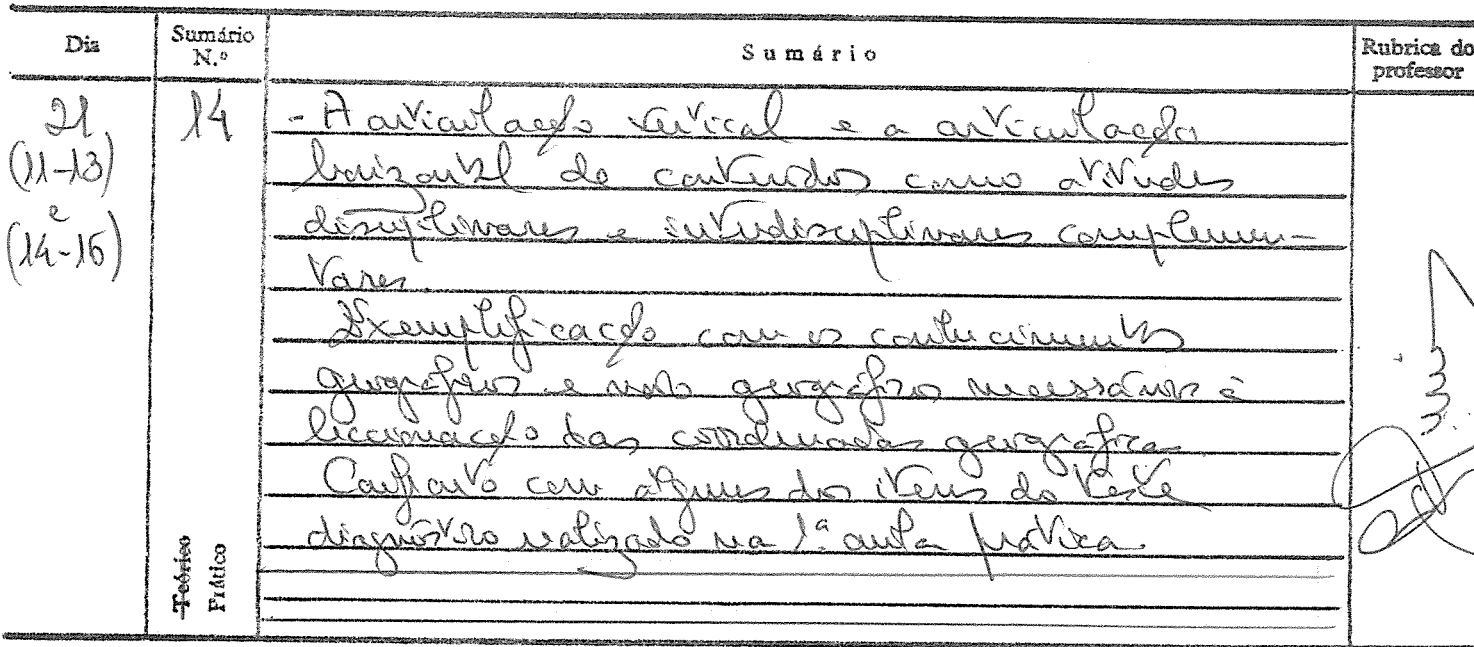 Dia
Sumário N.º
Sumário
Rubrica do professor
21
(11-13)
e
(14-16)
14
- A articulação vertical e a articulação
horizontal de conteúdos como atitudes
disciplinares e interdisciplinares complemen-
tares.
Exemplificação com os conhecimentos
geográficos e não geográficos necessários à
leccionação das coordenadas geográficas
Confronto com alguns dos itens do teste
diagnóstico realizado na 1.ª aula prática.
Teórico
Prático